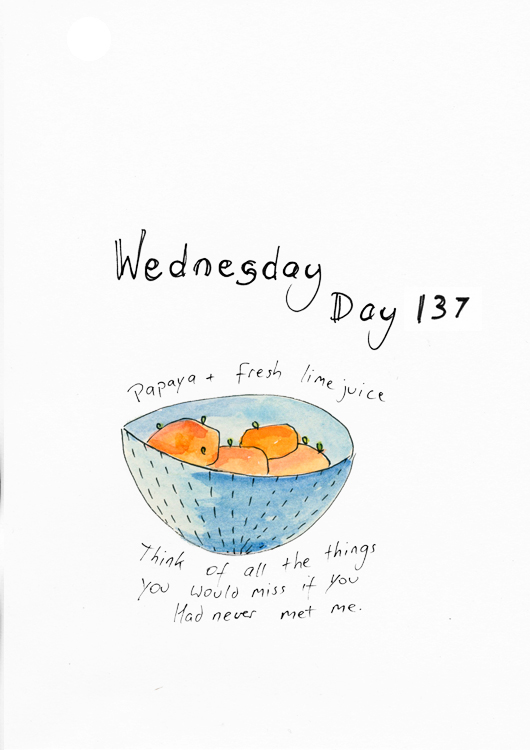 Wednesday
Day 137
Papaya + fresh lime juice
Think of all the things
you would miss if you
Had never met me.